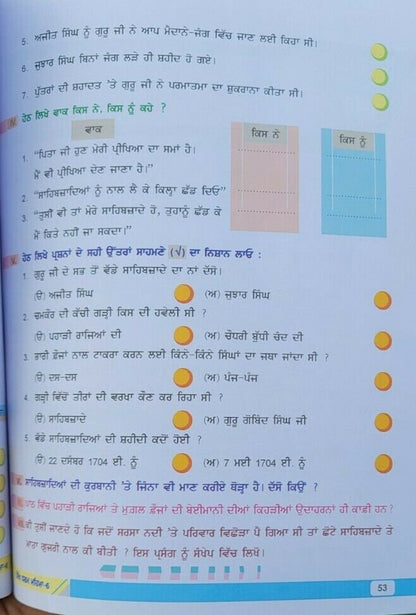 5. ਅਜੀਤ ਸਿੰਘ ਨੂੰ ਗੁਰੂ ਜੀ ਨੇ ਆਪ ਮੈਦਾਨੇ-ਜੰਗ ਵਿੱਚ ਜਾਣ ਲਈ ਕਿਹਾ ਸੀ।
6. ਜੁਝਾਰ ਸਿੰਘ ਬਿਨਾਂ ਜੰਗ ਲੜੇ ਹੀ ਸ਼ਹੀਦ ਹੋ ਗਏ।
7. ਪੁੱਤਰਾਂ ਦੀ ਸ਼ਹਾਦਤ 'ਤੇ ਗੁਰੂ ਜੀ ਨੇ ਪਰਮਾਤਮਾ ਦਾ ਸ਼ੁਕਰਾਨਾ ਕੀਤਾ ਸੀ।
IV. ਹੇਠ ਲਿਖੇ ਵਾਕ ਕਿਸ ਨੇ, ਕਿਸ ਨੂੰ ਕਹੇ ?
ਵਾਕ ਕਿਸ ਨੇ ਕਿਸ ਨੂੰ
1. "ਪਿਤਾ ਜੀ ਹੁਣ ਮੇਰੀ ਪ੍ਰੀਖਿਆ ਦਾ ਸਮਾਂ ਹੈ।
ਮੈਂ ਵੀ ਪ੍ਰੀਖਿਆ ਦੇਣ ਜਾਣਾ ਹੈ।"
2. "ਸਾਹਿਬਜ਼ਾਦਿਆਂ ਨੂੰ ਨਾਲ ਲੈ ਕੇ ਕਿਲ੍ਹਾ ਛੱਡ ਦਿਓ"
3. "ਤੁਸੀਂ ਵੀ ਤਾਂ ਮੇਰੇ ਸਾਹਿਬਜ਼ਾਦੇ ਹੋ, ਤੁਹਾਨੂੰ ਛੱਡ ਕੇ
ਮੈਂ ਕਿਤੇ ਨਹੀਂ ਜਾ ਸਕਦਾ।"
V. ਹੇਠ ਲਿਖੇ ਪ੍ਰਸ਼ਨਾਂ ਦੇ ਸਹੀ ਉੱਤਰਾਂ ਸਾਹਮਣੇ (√) ਦਾ ਨਿਸ਼ਾਨ ਲਾਓ :
1. ਗੁਰੂ ਜੀ ਦੇ ਸਭ ਤੋਂ ਵੱਡੇ ਸਾਹਿਬਜ਼ਾਦੇ ਦਾ ਨਾਂ ਦੱਸੋ।
(ੳ) ਅਜੀਤ ਸਿੰਘ (ਅ) ਜੁਝਾਰ ਸਿੰਘ
2. ਚਮਕੌਰ ਦੀ ਕੱਚੀ ਗੜ੍ਹੀ ਕਿਸ ਦੀ ਹਵੇਲੀ ਸੀ ?
(ੳ) ਪਹਾੜੀ ਰਾਜਿਆਂ ਦੀ (ਅ) ਚੌਧਰੀ ਬੁੱਧੀ ਚੰਦ ਦੀ
3. ਭਾਰੀ ਫ਼ੌਜਾਂ ਨਾਲ ਟਾਕਰਾ ਕਰਨ ਲਈ ਕਿੰਨੇ-ਕਿੰਨੇ ਸਿੰਘਾਂ ਦਾ ਜਥਾ ਜਾਂਦਾ ਸੀ ?
(ੳ) ਦਸ-ਦਸ (ਅ) ਪੰਜ-ਪੰਜ
4. ਗੜ੍ਹੀ ਵਿੱਚੋਂ ਤੀਰਾਂ ਦੀ ਵਰਖਾ ਕੌਣ ਕਰ ਰਿਹਾ ਸੀ ?
(ੳ) ਸਾਹਿਬਜ਼ਾਦੇ (ਅ) ਗੁਰੂ ਗੋਬਿੰਦ ਸਿੰਘ ਜੀ
5. ਵੱਡੇ ਸਾਹਿਬਜ਼ਾਦਿਆਂ ਦੀ ਸ਼ਹੀਦੀ ਕਦੋਂ ਹੋਈ ?
(ੳ) 22 ਦਸੰਬਰ 1704 ਈ. ਨੂੰ (ਅ) 7 ਮਈ 1704 ਈ. ਨੂੰ
ਸਾਹਿਬਜ਼ਾਦਿਆਂ ਦੀ ਕੁਰਬਾਨੀ 'ਤੇ ਜਿੰਨਾ ਵੀ ਮਾਣ ਕਰੀਏ ਥੋੜ੍ਹਾ ਹੈ। ਦੱਸੋ ਕਿਉਂ ?
ਪਾਠ ਵਿੱਚ ਪਹਾੜੀ ਰਾਜਿਆਂ ਤੇ ਮੁਗ਼ਲ ਫ਼ੌਜਾਂ ਦੀ ਬੇਈਮਾਨੀ ਦੀਆਂ ਕਿਹੜੀਆਂ ਉਦਾਹਰਨਾਂ ਹੀ ਕਾਫ਼ੀ ਹਨ ?
ਕੀ ਤੁਸੀਂ ਜਾਣਦੇ ਹੋ ਕਿ ਜਦੋਂ ਸਰਸਾ ਨਦੀ 'ਤੇ ਪਰਿਵਾਰ ਵਿਛੋੜਾ ਪੈ ਗਿਆ ਸੀ ਤਾਂ ਛੋਟੇ ਸਾਹਿਬਜ਼ਾਦੇ ਤੇ
ਮਾਤਾ ਗੁਜਰੀ ਨਾਲ ਕੀ ਬੀਤੀ ? ਇਸ ਪ੍ਰਸੰਗ ਨੂੰ ਸੰਖੇਪ ਵਿੱਚ ਲਿਖੋ।
53